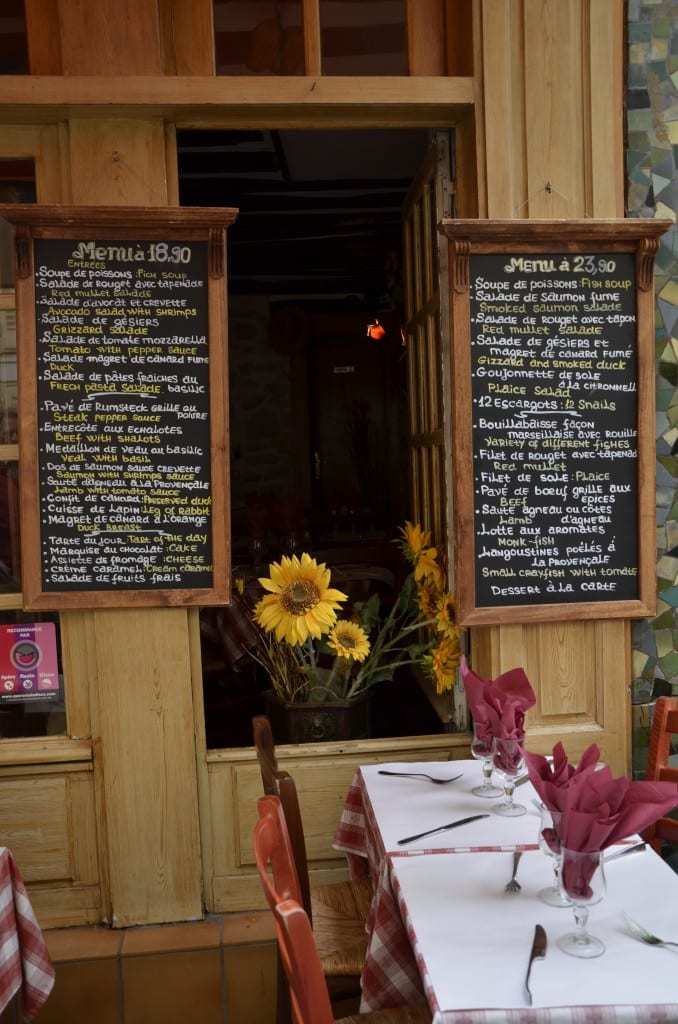 Menu à 18,90
ENTRÉES
SOUPE DE POISSONS : FICH SOUP
SALADE DE ROUGET AVEC TAPENADE
RED MULLET SALADE
SALADE D'AVOCAT ET CREVETTE
AVOCADO SALAD WITH SHRIMPS
SALADE DE GÉSIERS
GRIZZARD SALADE
SALADE DE TOMATE MOZZARELLA
TOMATO WITH PEPPER SAUCE
SALADE MAGRET DE CANARD FUMÉ
DUCK
SALADE DE PÂTES FRAICHES AU
FRECH PASTA SALADE BASILIC
PAVÉ DE RUMSTECK GRILLE AU
POIVRE
STEAK PEPPER SAUCE
ENTRECÔTE AUX ECHALOTES
BEEF WITH SHALOTS
MEDAILLON DE VEAU AU BASILIC
VEAL WITH BASIL
DOS DE SAUMON SAUCE CREVETTE
SALMON WITH SHRIMPS SAUCE
SAUTÉ D'AGNEAU À LA PROVENÇALE
LAMB WITH TOMATO SAUCE
CONFIT DE CANARD : PRESERVED DUCK
CUISSE DE LAPIN : LEG OF RABBIT
MAGRET DE CANARD À L'ORANGE
DUCK BREAST
TARTE DU JOUR : TART OF THE DAY
MARQUISE AU CHOCOLAT : CAKE
ASSIETE DE FROMAGE : CHEESE
CRÈME CARAMEL : CREAM CARAMEL
SALADE DE FRUITS FRAIS
Menu à 23,90
SOUPE DE POISSONS : FISH SOUP
SALADE DE SAUMON FUME
SMOKED SAUMON SALADE
SALADE DE ROUGET AVEC TAPON
RED MULLET SALADE
SALADE DE GÉSIERS ET
MAGRET DE CANARD FUMÉ
GIZZARD AND SMOKED DUCK
GOUJONNETTE DE SOLE
À LA CITRONNELL
PLAICE SALAD
12 ESCARGOTS : 12 SNAILS
BOUILLABAISSE FAÇON
MARSEILLAISE AVEC ROUILLE
VARIETY OF DIFFERENT FISHES
FILET DE ROUGET AVEC TAPENAD
RED MULLET
FILET DE SOLE : PLAICE
PAVÉ DE BOEUF GRILLE AUX
BEEF EPICES
SAUTÉ AGNEAU OU CÔTES
LAMB D'AGNEAU
LOTTE AUX AROMATES
MONK-FISH
LANGOUSTINES POÊLÉS À
LA PROVENÇALE
SMALL CRAYFISH WITH TOMATE
DESSERT À LA CARTE
RECOMMANDÉ
PAR
Apéro Resto Disco